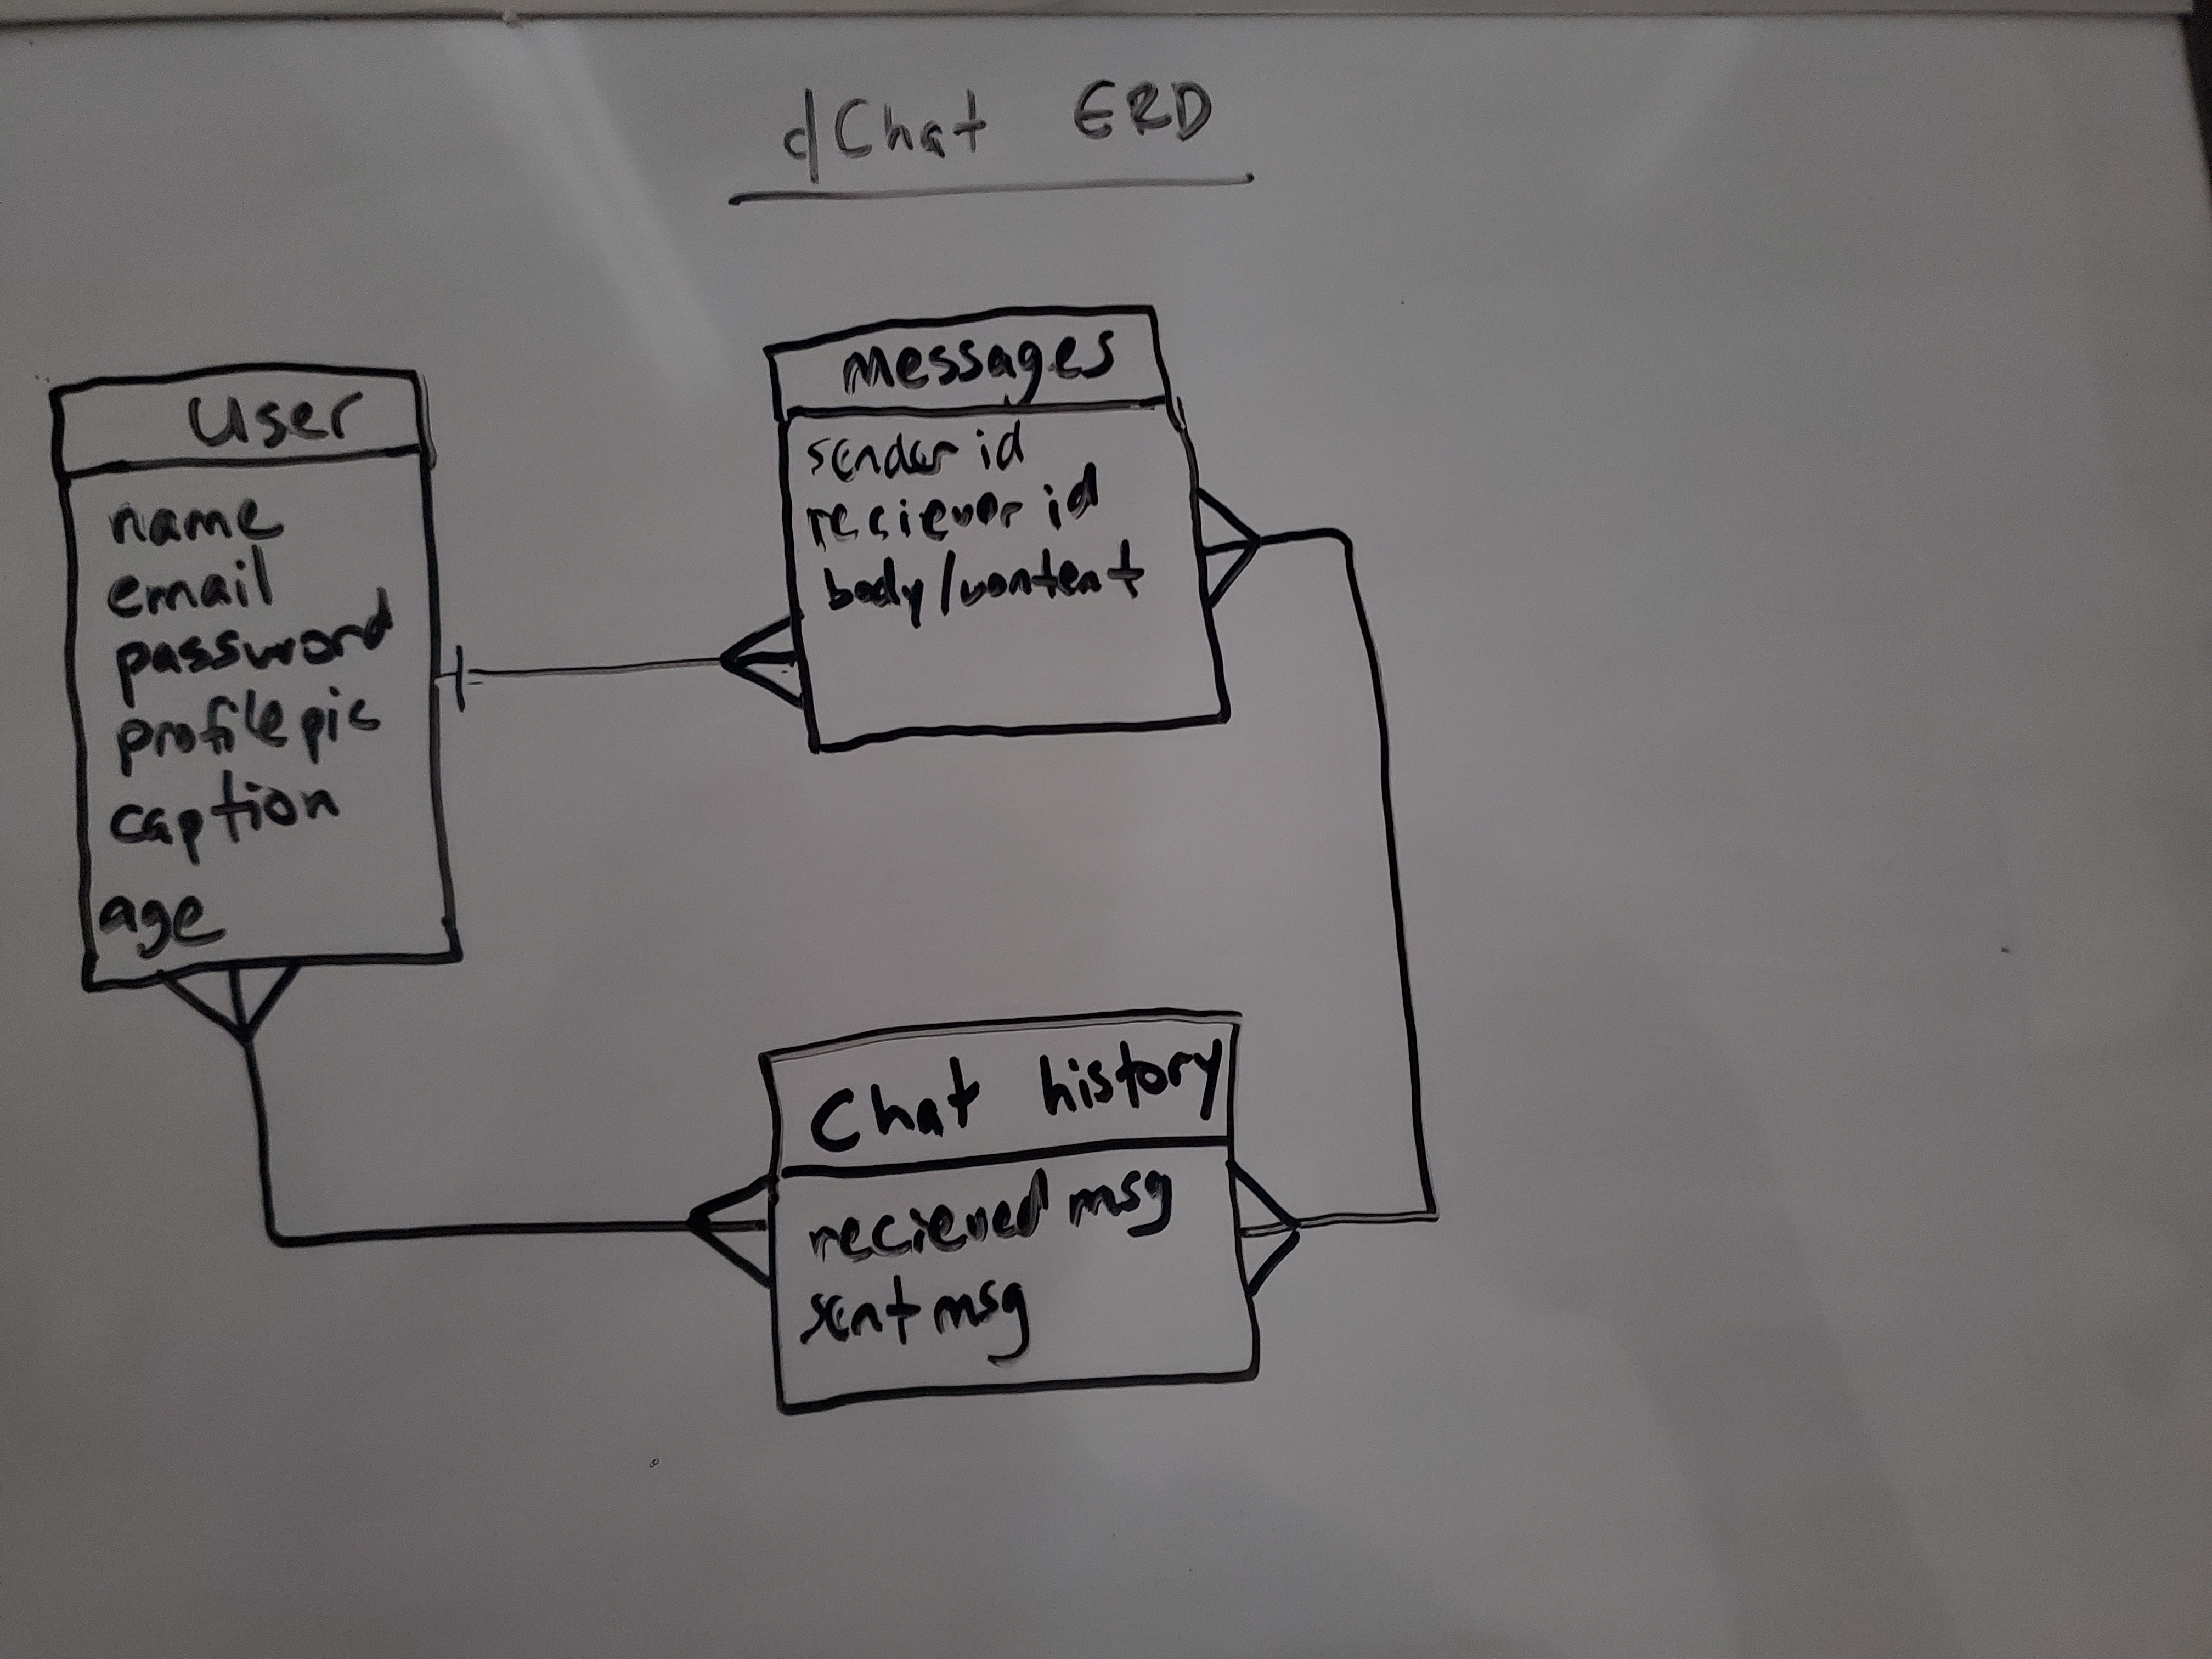 d/Chat ERD
User
name
email
password
profile pic
caption
age
messages
sender id
reciever id
body/content
Chat history
recieved msg
sent msg